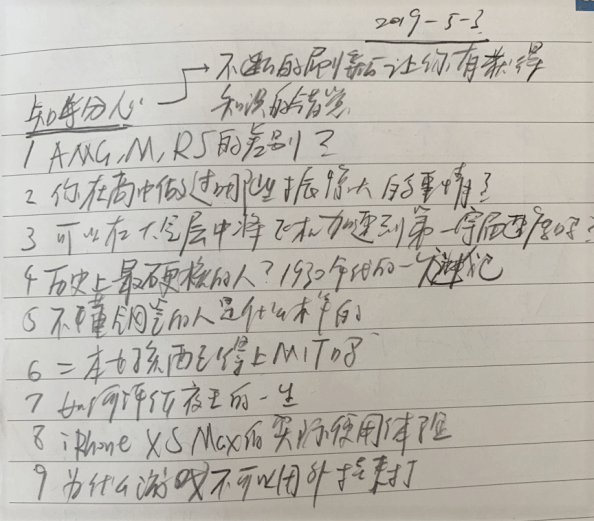 2019-5-3
不断的刷新会让你有获得
知识的错觉
知乎分心
1 AMG,M,RS的差别?
2 你在高中做过哪些胆大的事情?
3 可以在大气层中将飞机加速到第一宇宙速度吗?
4 历史上最硬核的人?1930年代的一
5 不懂的人是什么样的
6 二本女孩配得上MIT吗
7 如何评价夜王的一生
8 iPhone XS Max的实际使用体验
9 为什么游戏不可以用外挂来打